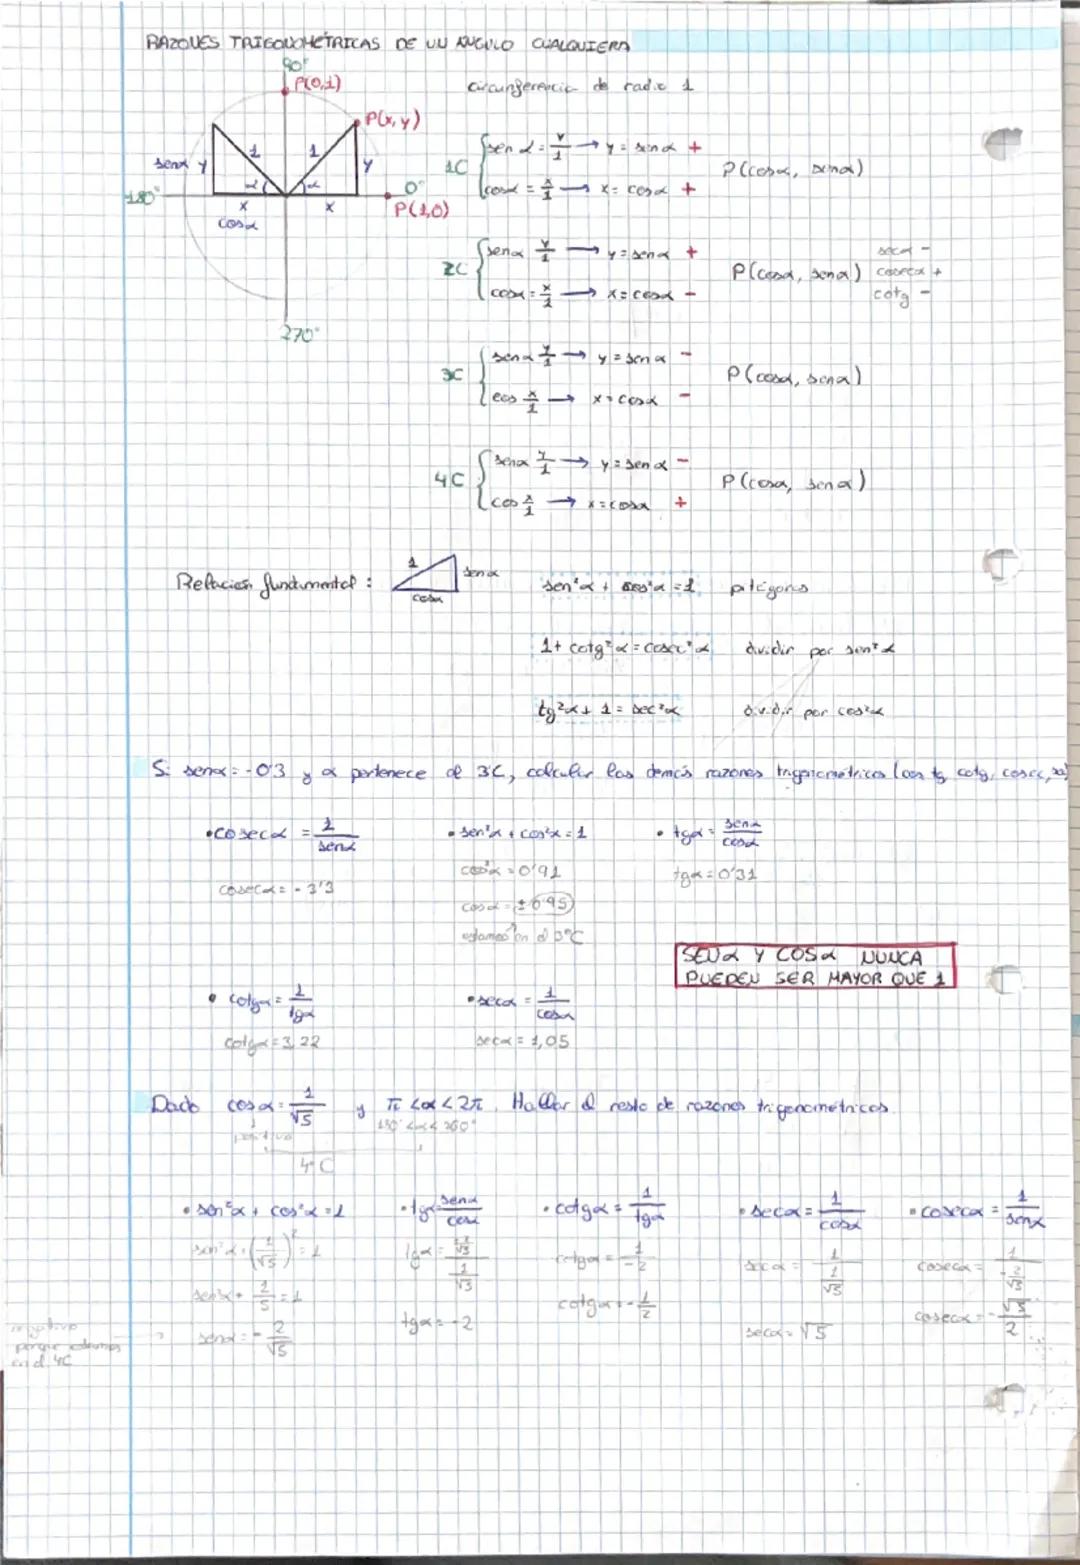 RAZONES TRIGONOMÉTRICAS DE UN ÁNGULO CUALQUIERA
90°
P(0,1)
circunferencia de radio 1
P(x, y)
senα y
1
1
y
α
α
180°
x
x
0°
cosα
P(1,0)
270°
1C
sen α = y/1 → y = senα +
cosα = x/1 → x = cosα +
P(cosα, senα)
2C
senα y/1 → y = senα +
cosα = x/1 → x = cosα -
P(cosα, senα)
secα -
cosecα +
cotg -
3C
senα y/1 → y = senα -
cos x/1 → x = cosα -
P(cosα, senα)
4C
senα y/1 → y = senα -
cos x/1 → x = cosα +
P(cosα, senα)
Relacion fundamental :
1
senα
cosα
sen²α + cos²α = 1 pitágoras
1 + cotg²α = cosec²α dividir por sen²α
tg²α + 1 = sec²α dividir por cos²α
Si senα = -0'3 y α pertenece al 3C, calcular las demás razones trigonométricas (cos tg, cotg, cosec, sec)
• cosecα = 1/senα
cosecα = - 3'3
• sen²α + cos²α = 1
cos²α = 0'91
cosα = ± 0'95
estamos en el 3°C
• tgα = senα/cosα
tgα = 0'31
SENα Y COSα NUNCA
PUEDEN SER MAYOR QUE 1
• cotgα = 1/tgα
cotgα = 3,22
• secα = 1/cosα
secα = 1,05
Dado cosα = 1/√5 y π < α < 2π. Hallar el resto de razones trigonométricas.
positivo
180° < α < 360°
4°C
• sen²α + cos²α = 1
sen²α + (1/√5)² = 1
sen²α + 1/5 = 1
senα = - 2/√5
negativo
porque estamos
en el 4C
• tgα = senα/cosα
tgα = -2
• cotgα = 1/tgα
cotgα = 1/-2
cotgα = - 1/2
• secα = 1/cosα
secα = 1/(1/√5)
secα = √5
• cosecα = 1/senα
cosecα = 1/(-2/√5)
cosecα = - √5/2